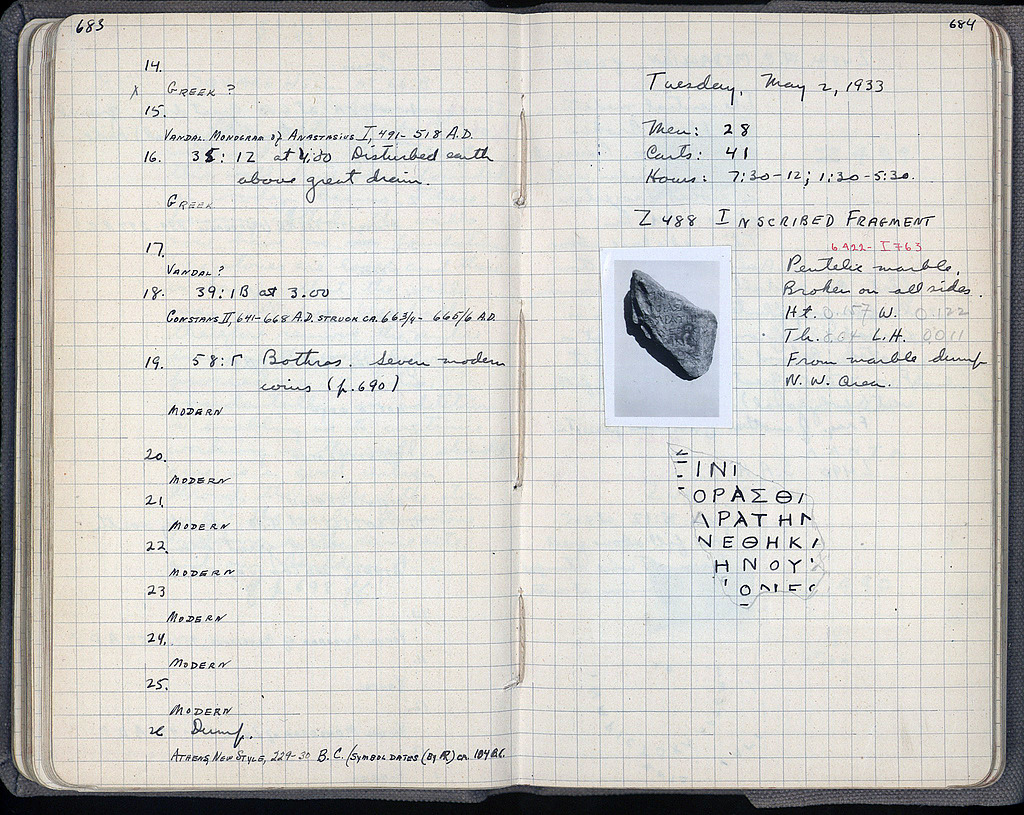 683
14.
X GREEK ?
15.
VANDAL. MONOGRAM of ANASTASIUS I, 491-518 A.D.
16. 35:12 at 4.00 Disturbed earth
above great drain.
GREEK
17.
VANDAL ?
18. 39:1B at 3.00
CONSTANS II, 641-668 A.D. STRUCK CA. 663/4-665/6 A.D.
19. 58:Γ Bothros. Seven modern
coins (p.690)
MODERN
20.
MODERN
21.
MODERN
22.
MODERN
23
MODERN
24.
MODERN
25.
MODERN
26 Dump.
ATHENS, NEW STYLE, 229-30 B.C. (SYMBOL DATES (BY PR) CA. 184 B.C.
684
Tuesday, May 2, 1933
Men: 28
Carts: 41
Hours: 7:30-12; 1:30-5:30.
Z 488 INSCRIBED FRAGMENT
I 763
Pentelic marble.
Broken on all sides.
Ht. 0.157 W. 0.122
Th. L.H. 0011
From marble dump
N. W. Area.
ΙΝΙ
ΟΡΑΣΘΙ
ΡΑΤΗ
ΝΕΘΗΚΙ
ΗΝΟΥ